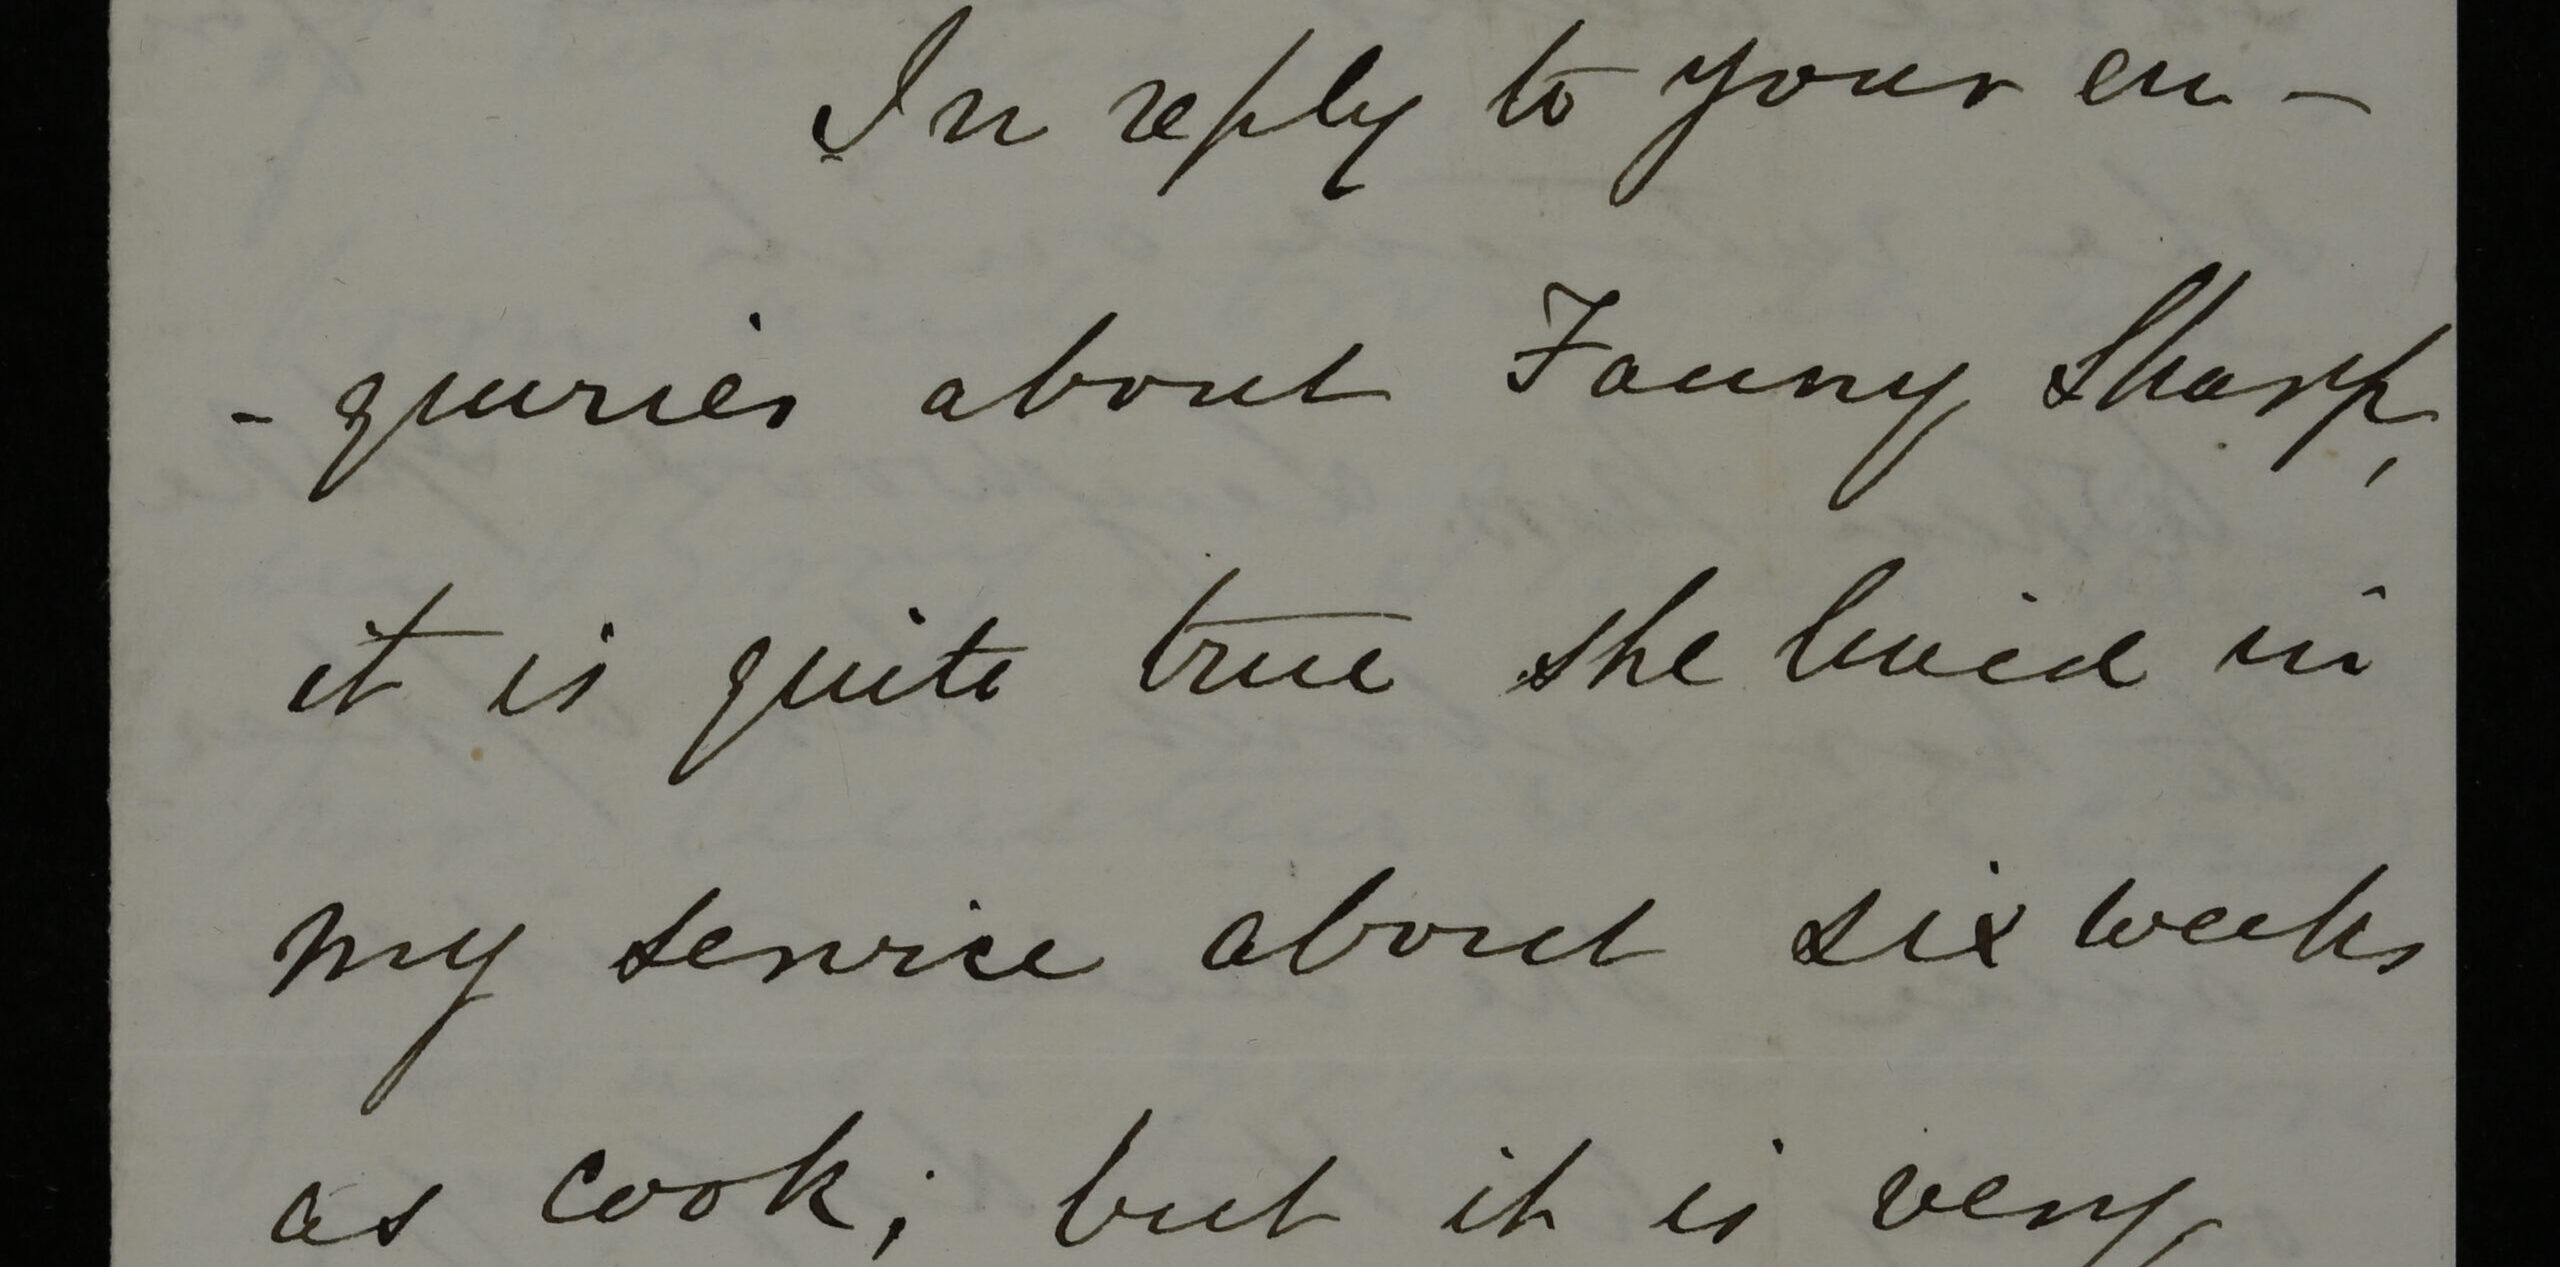 In reply to your en-
-quiries about Fanny Sharp,
it is quite true she lived in
my service about six weeks
as cook; but it is very